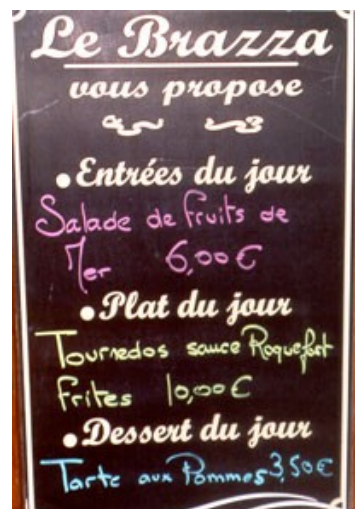 Le Brazza
vous propose
Entrées du jour
Salade de fruits de
Mer 6,00€
Plat du jour
Tournedos sauce Roquefort
Frites 10,00€
Dessert du jour
Tarte aux Pommes 3,50€